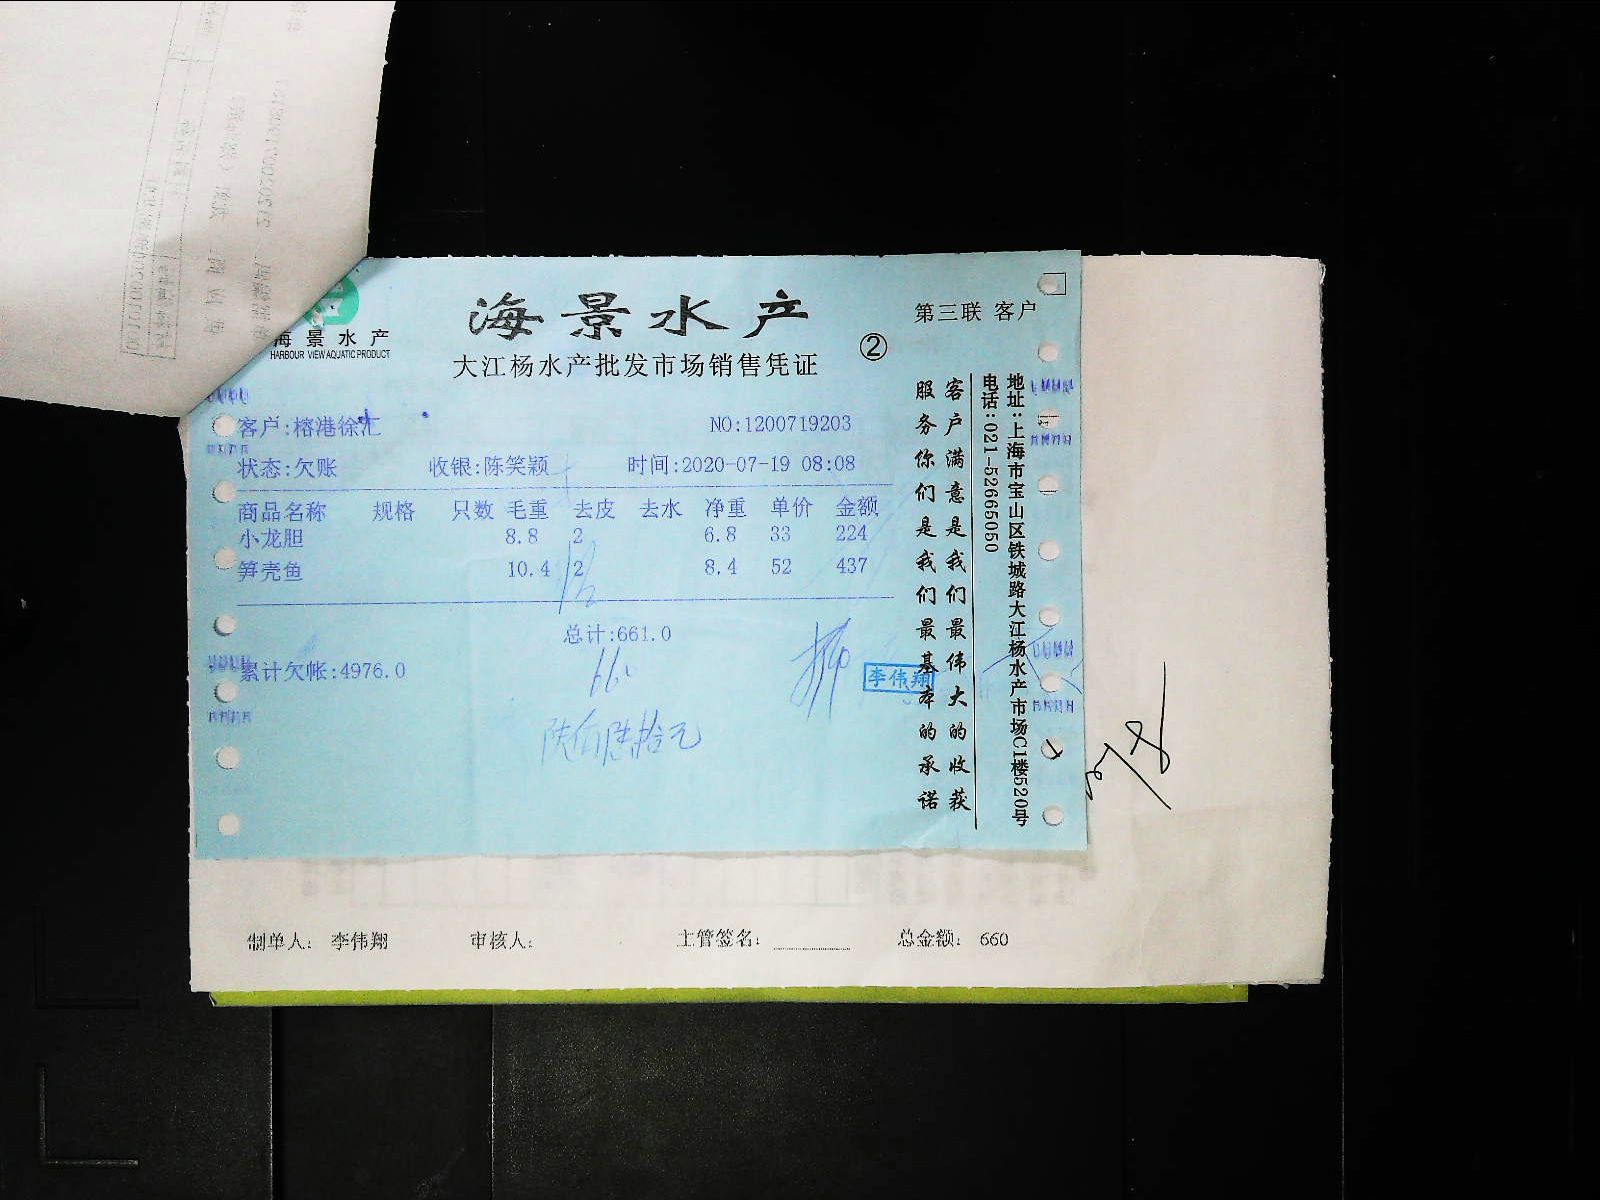 海景水产
HARBOUR VIEW AQUATIC PRODUCT
海景水产
大江杨水产批发市场销售凭证
②
第三联 客户
客户:榕港徐汇
NO:1200719203
状态:欠账 收银:陈笑颖 时间:2020-07-19 08:08
商品名称 规格 只数 毛重 去皮 去水 净重 单价 金额
小龙胆 8.8 2 6.8 33 224
笋壳鱼 10.4 2 8.4 52 437
总计:661.0
累计欠帐:4976.0
660
陆佰陆拾元
李伟翔
客户满意是我们最伟大的收获
服务你们是我们最基本的承诺
地址:上海市宝山区铁城路大江杨水产市场C1楼520号
电话:021-52665050
制单人: 李伟翔 审核人: 主管签名: 总金额: 660